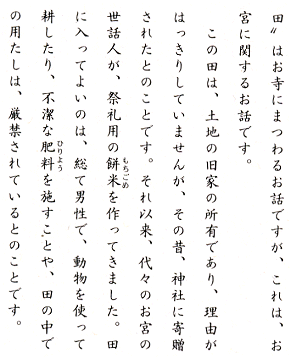 田〟はお寺にまつわるお話ですが、これは、お
宮に関するお話です。
この田は、土地の旧家の所有であり、理由が
はっきりしていませんが、その昔、神社に寄贈
されたとのことです。それ以来、代々のお宮の
世話人が、祭礼用の餅米を作ってきました。田
もちごめ
に入ってよいのは、総て男性で、動物を使って
耕したり、不潔な肥料を施すことや、田の中で
ひりよう
の用たしは、厳禁されているとのことです。